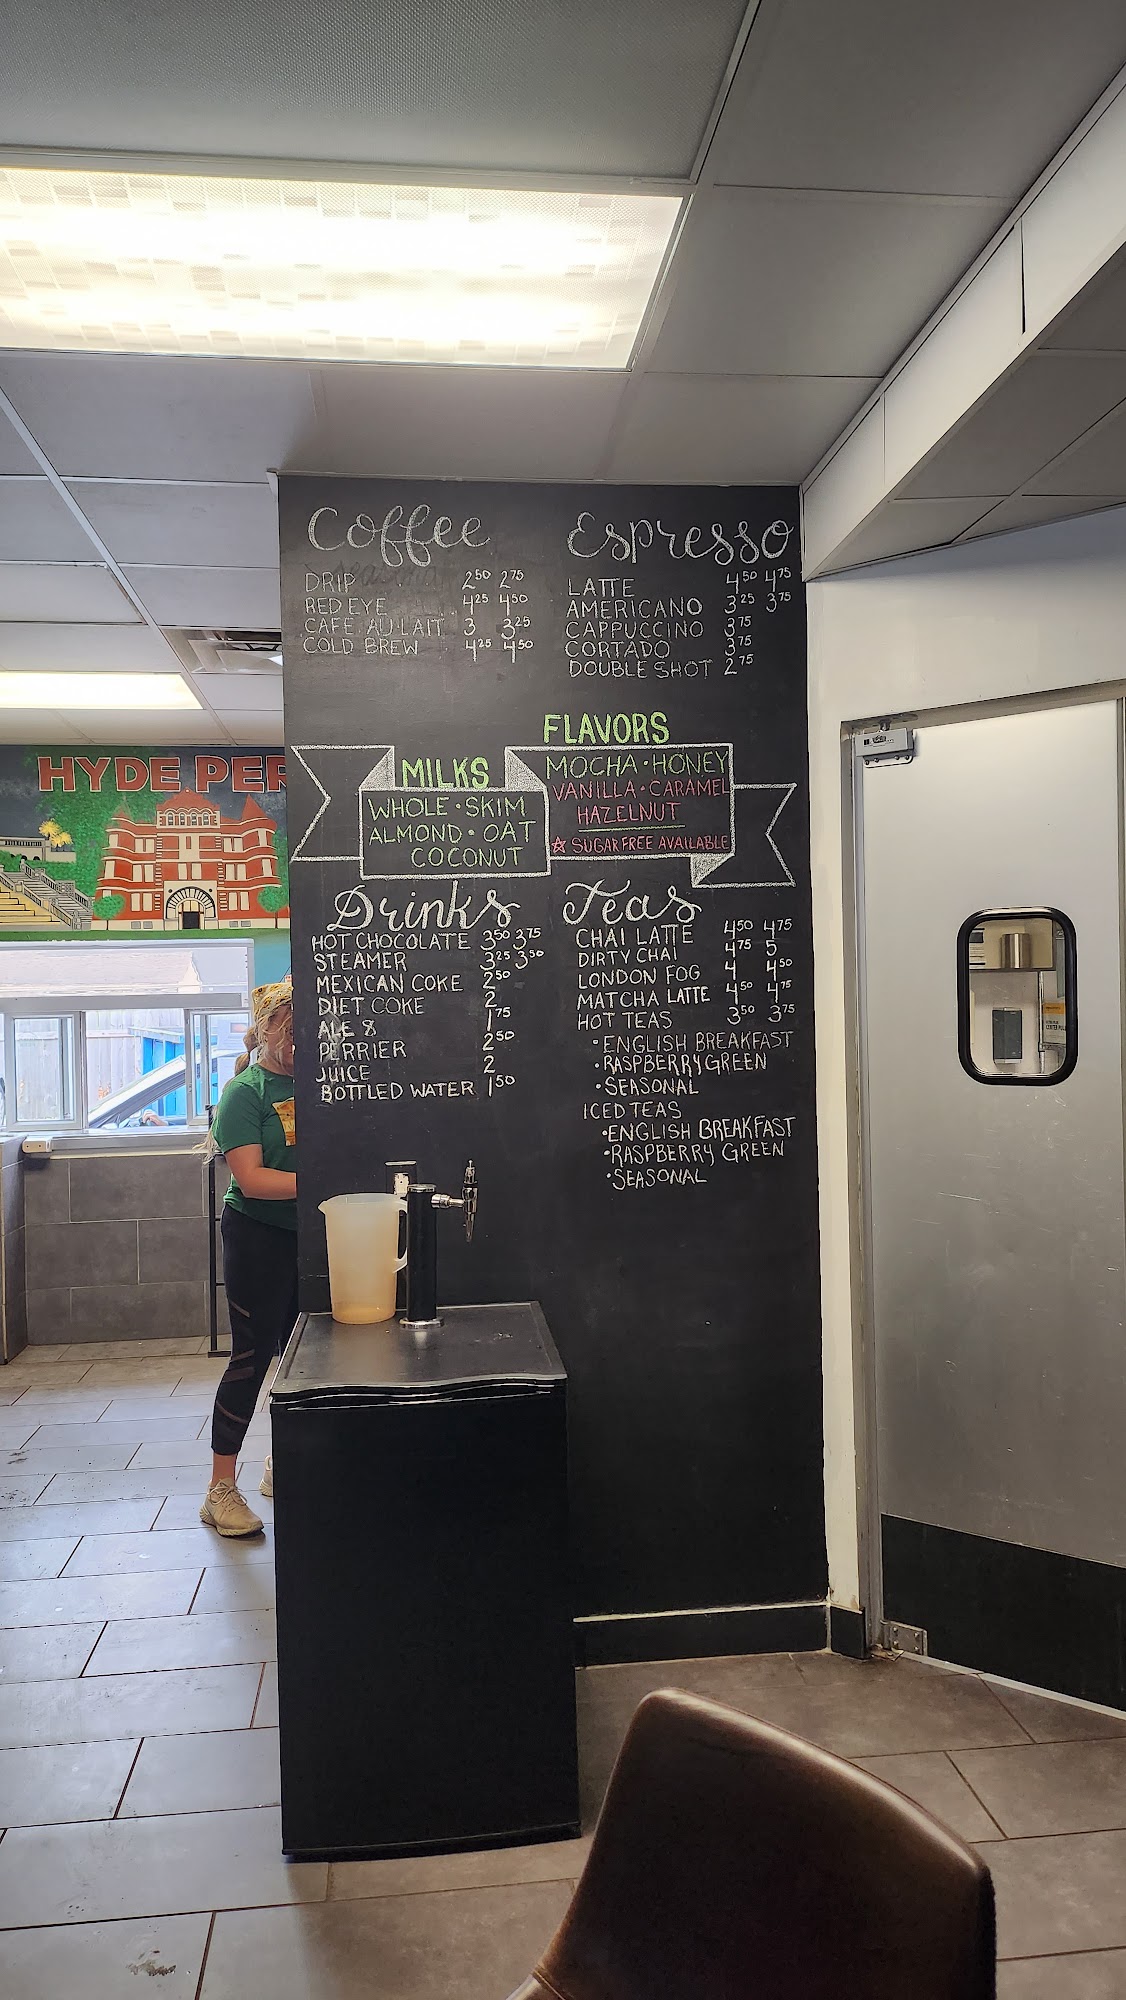 Coffee
DRIP 2.50 2.75
RED EYE 4.25 4.50
CAFE AU LAIT 3 3.25
COLD BREW 4.25 4.50
Espresso
LATTE 4.50 4.75
AMERICANO 3.25 3.75
CAPPUCCINO 3.75
CORTADO 3.75
DOUBLE SHOT 2.75
FLAVORS
MOCHA · HONEY
VANILLA · CARAMEL
HAZELNUT
☆ SUGAR FREE AVAILABLE
MILKS
WHOLE · SKIM
ALMOND · OAT
COCONUT
HYDE PER
Drinks
HOT CHOCOLATE 3.50 3.75
STEAMER 3.25 3.50
MEXICAN COKE 2.50
DIET COKE 2
ALE 8 1.75
PERRIER 2.50
JUICE 2
BOTTLED WATER 1.50
Teas
CHAI LATTE 4.50 4.75
DIRTY CHAI 4.75 5
LONDON FOG 4 4.50
MATCHA LATTE 4.50 4.75
HOT TEAS 3.50 3.75
• ENGLISH BREAKFAST
• RASPBERRY GREEN
• SEASONAL
ICED TEAS
• ENGLISH BREAKFAST
• RASPBERRY GREEN
• SEASONAL